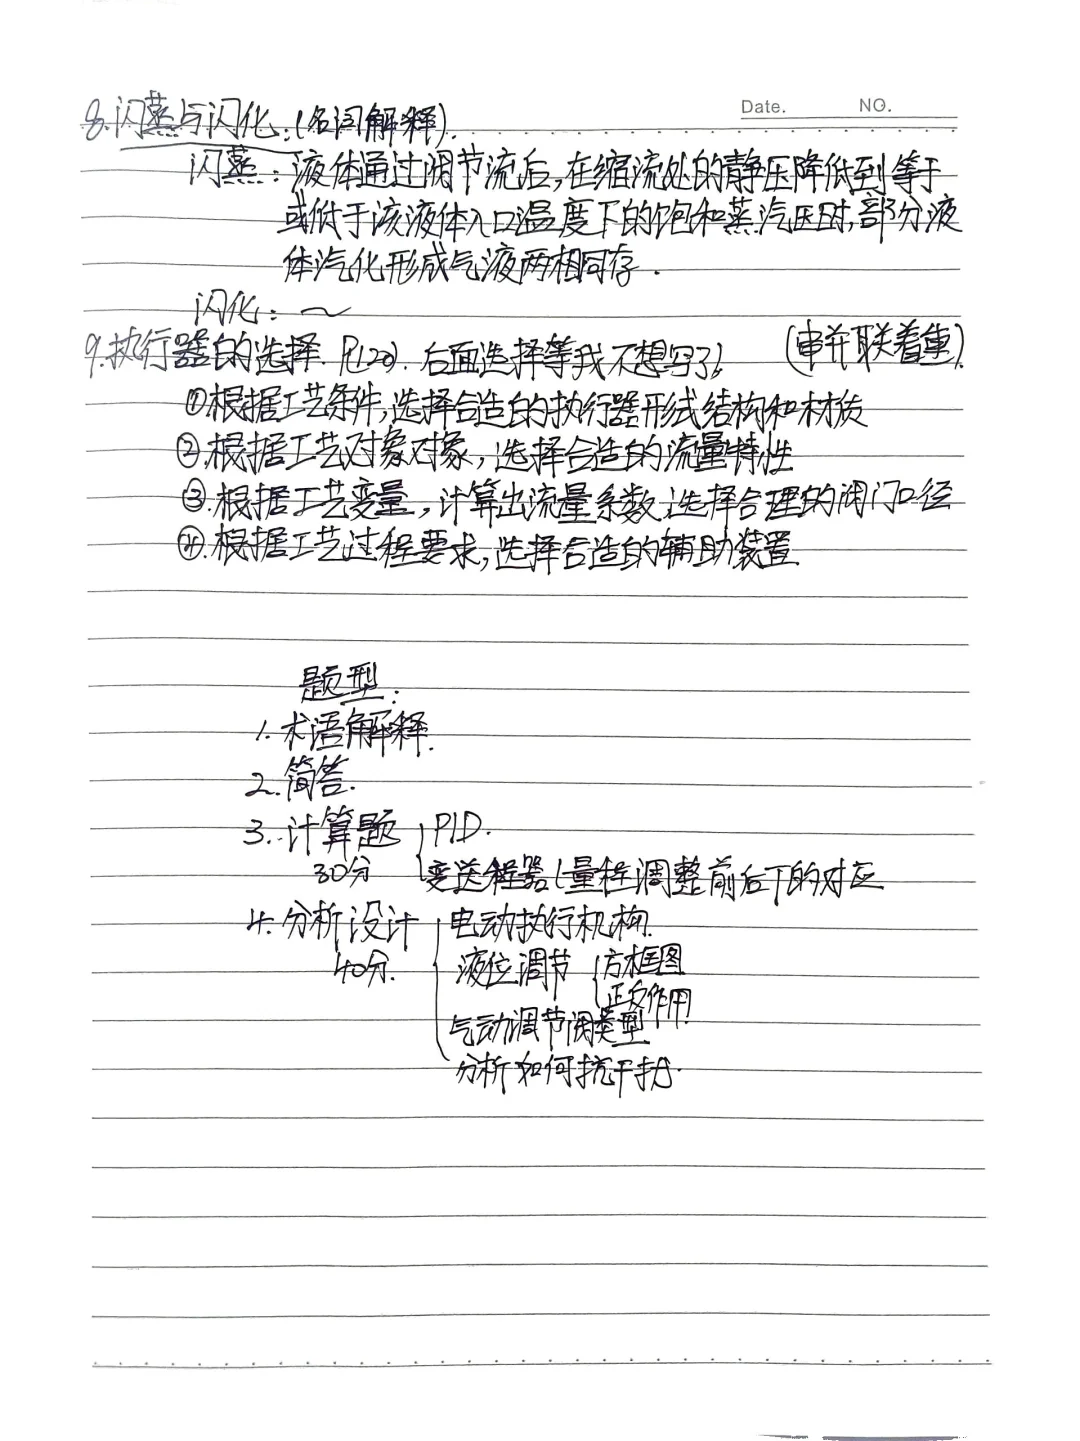 Date. NO.
8.闪蒸与闪化:(名词解释).
闪蒸:液体通过调节流后,在缩流处的静压降低到等于
或低于该液体入口温度下的饱和蒸汽压时,部分液
体汽化形成气液两相同存.
闪化:～
9.执行器的选择. P(120). 后面选择等我不想写了! (串并联着重).
①根据工艺条件,选择合适的执行器形式结构和材质
②.根据工艺对象对象,选择合适的流量特性
③.根据工艺变量,计算出流量系数,选择合理的阀门口径
④.根据工艺过程要求,选择合适的辅助装置.
题型:
1.术语解释.
2.简答.
3.计算题 PID.
30分 变送程器(量程调整前后下的对应
4.分析设计 电动执行机构.
40分. 液位调节 方框图
正反作用
气动调节阀类型
分析如何抗干扰.